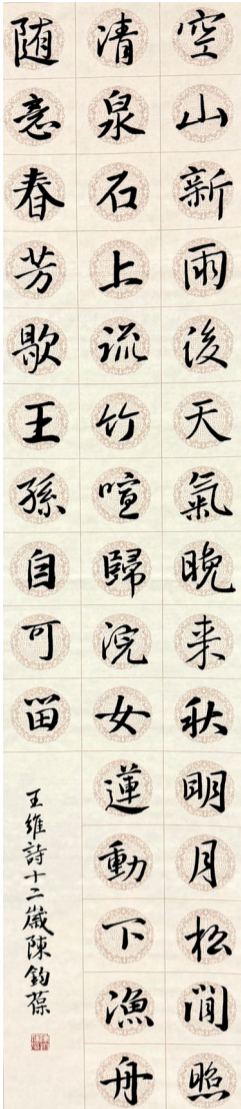 空山新雨後天氣晚来秋明月松間照
清泉石上流竹喧歸浣女蓮動下漁舟
随意春芳歇王孫自可留
王維詩十二歲陳鈞葆